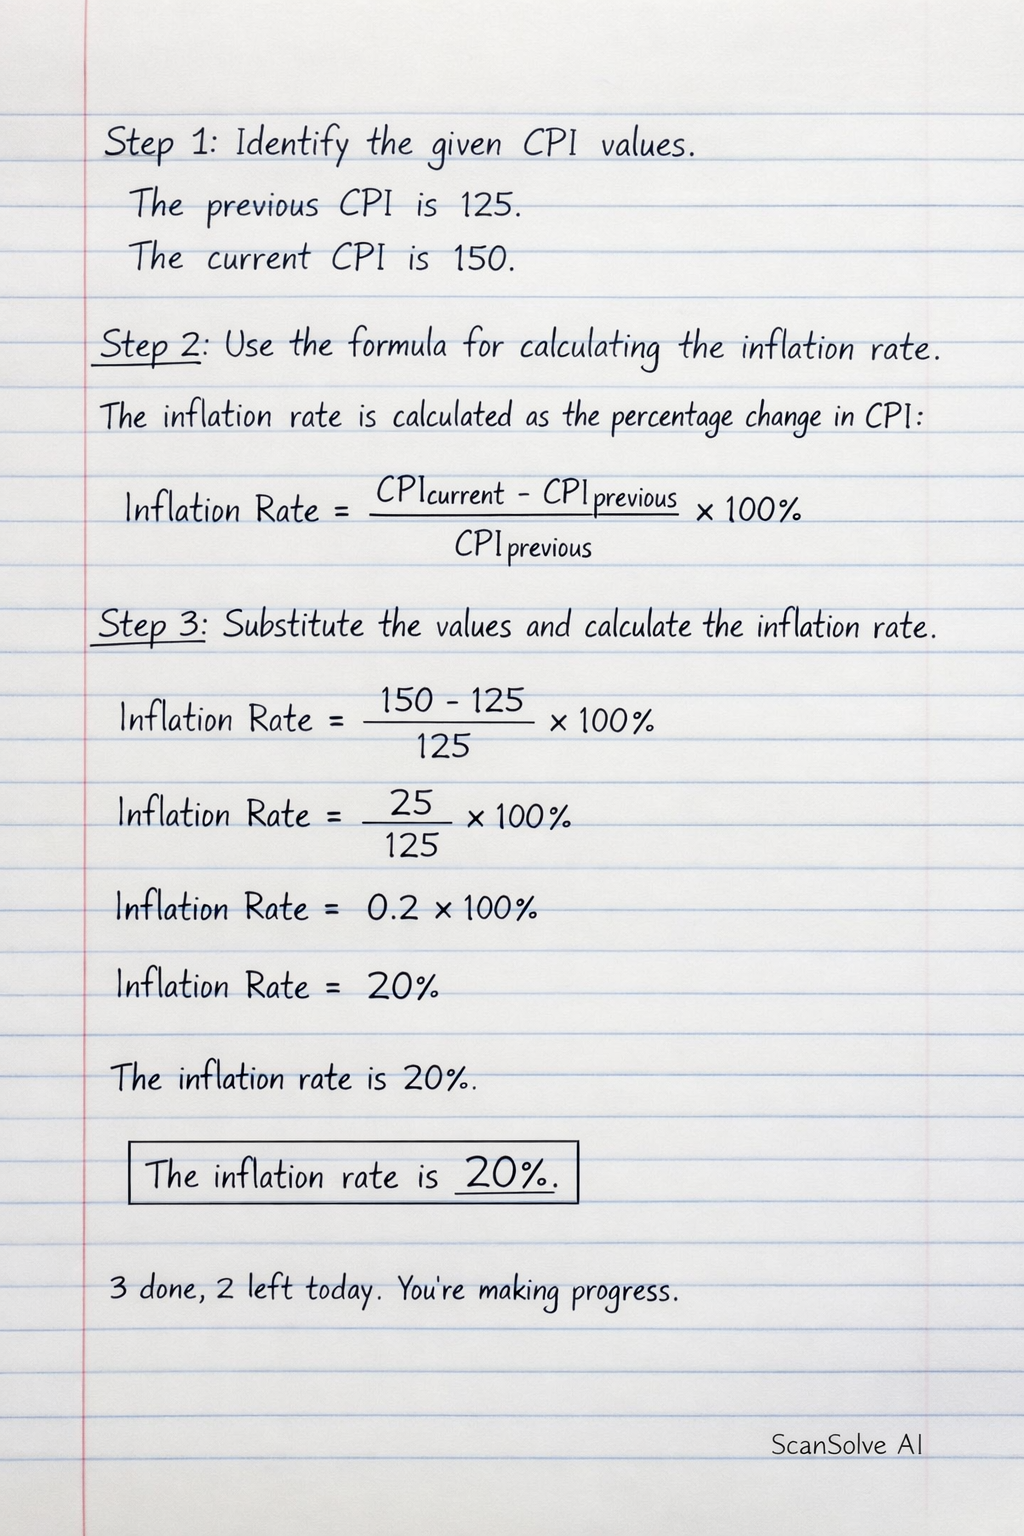 Step 1: Identify the given CPI values.
The previous CPI is 125.
The current CPI is 150.
Step 2: Use the formula for calculating the inflation rate.
The inflation rate is calculated as the percentage change in CPI:
Inflation Rate = (CPIcurrent - CPIprevious) / CPIprevious × 100%
Step 3: Substitute the values and calculate the inflation rate.
Inflation Rate = (150 - 125) / 125 × 100%
Inflation Rate = 25 / 125 × 100%
Inflation Rate = 0.2 × 100%
Inflation Rate = 20%
The inflation rate is 20%.
The inflation rate is 20%.
3 done, 2 left today. You're making progress.
ScanSolve AI